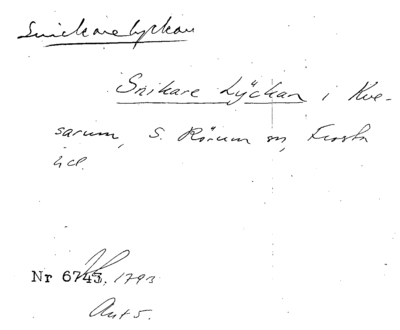 Snickarelyckan
Snikare Lÿckan i Kve-
sarum, S. Rörum sn, Frosta
hd.
Nr 6743, 1793
Akt 5.